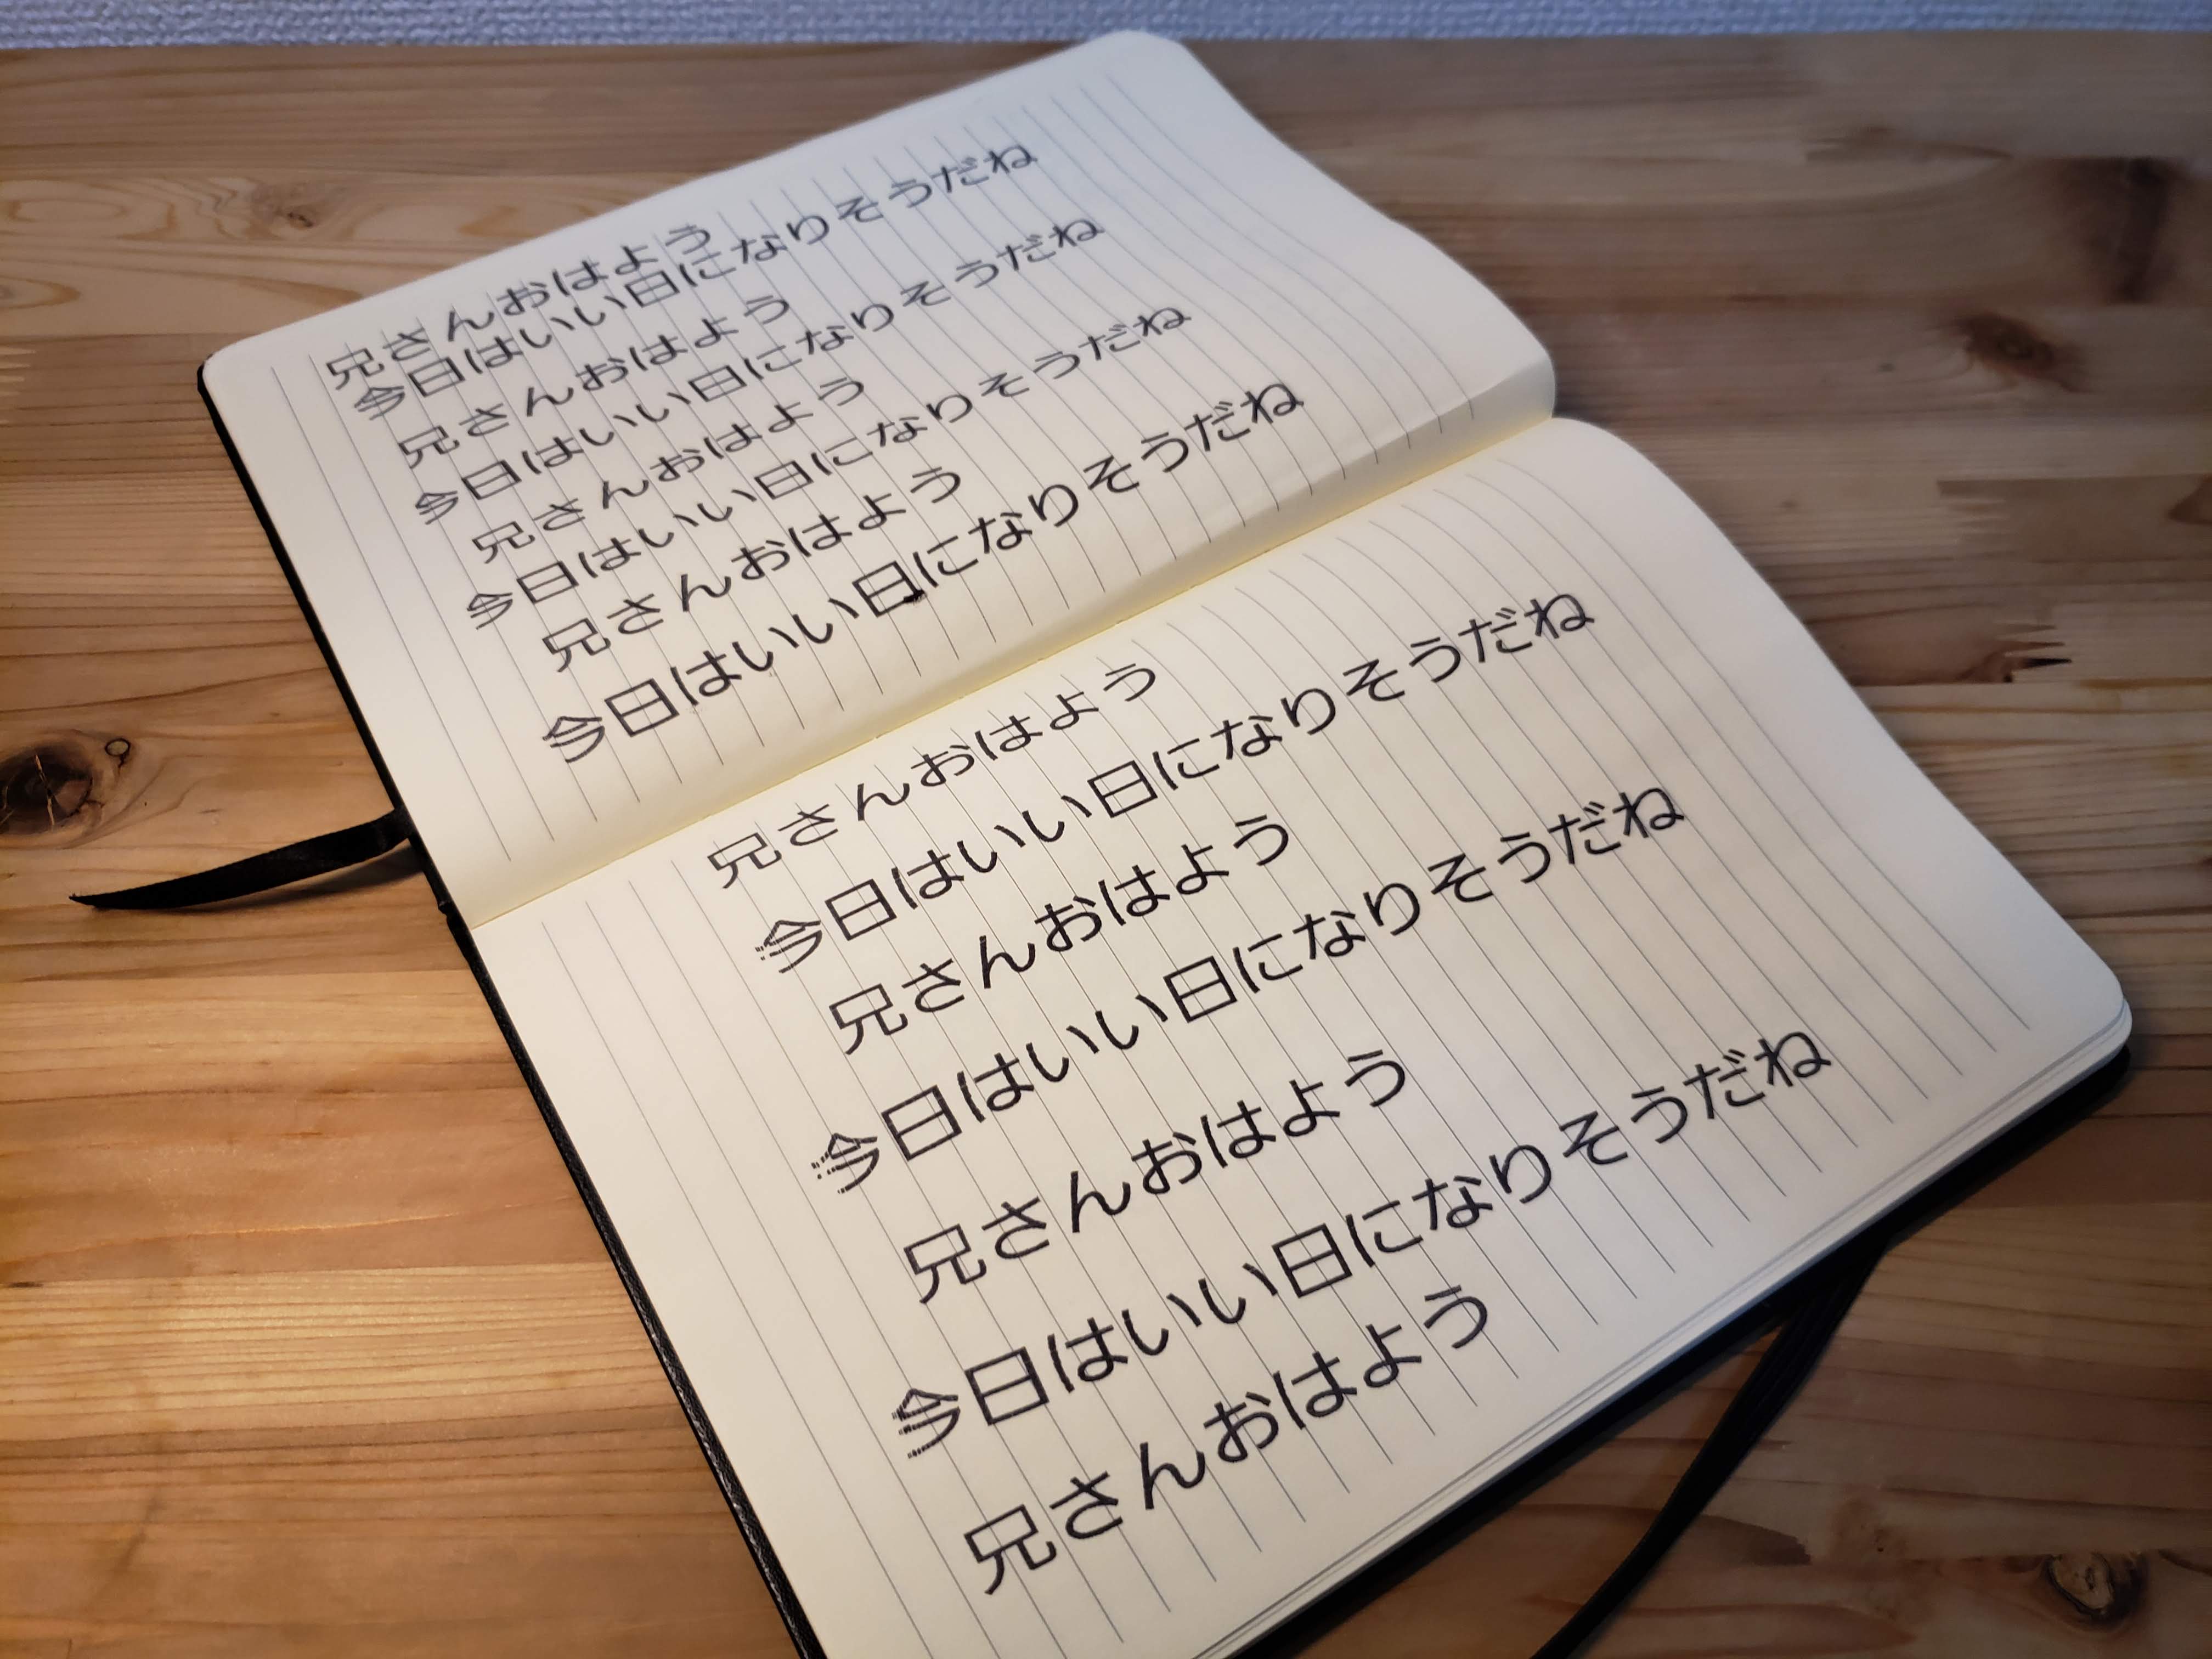 兄さんおはよう
今日はいい日になりそうだね
兄さんおはよう
今日はいい日になりそうだね
兄さんおはよう
今日はいい日になりそうだね
兄さんおはよう
今日はいい日になりそうだね
兄さんおはよう
今日はいい日になりそうだね
兄さんおはよう
今日はいい日になりそうだね
兄さんおはよう
今日はいい日になりそうだね
兄さんおはよう